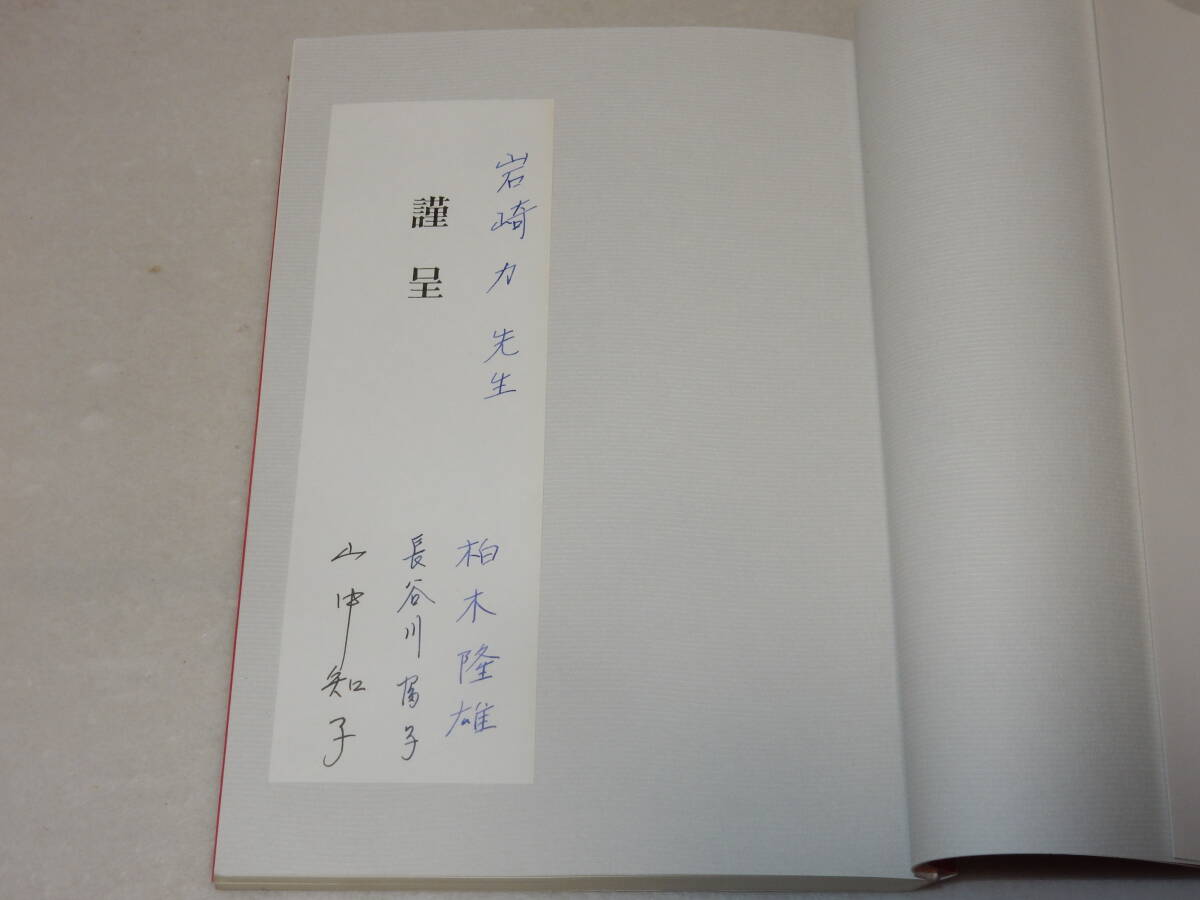 岩崎力先生
謹呈
柏木隆雄
長谷川富子
山中知子